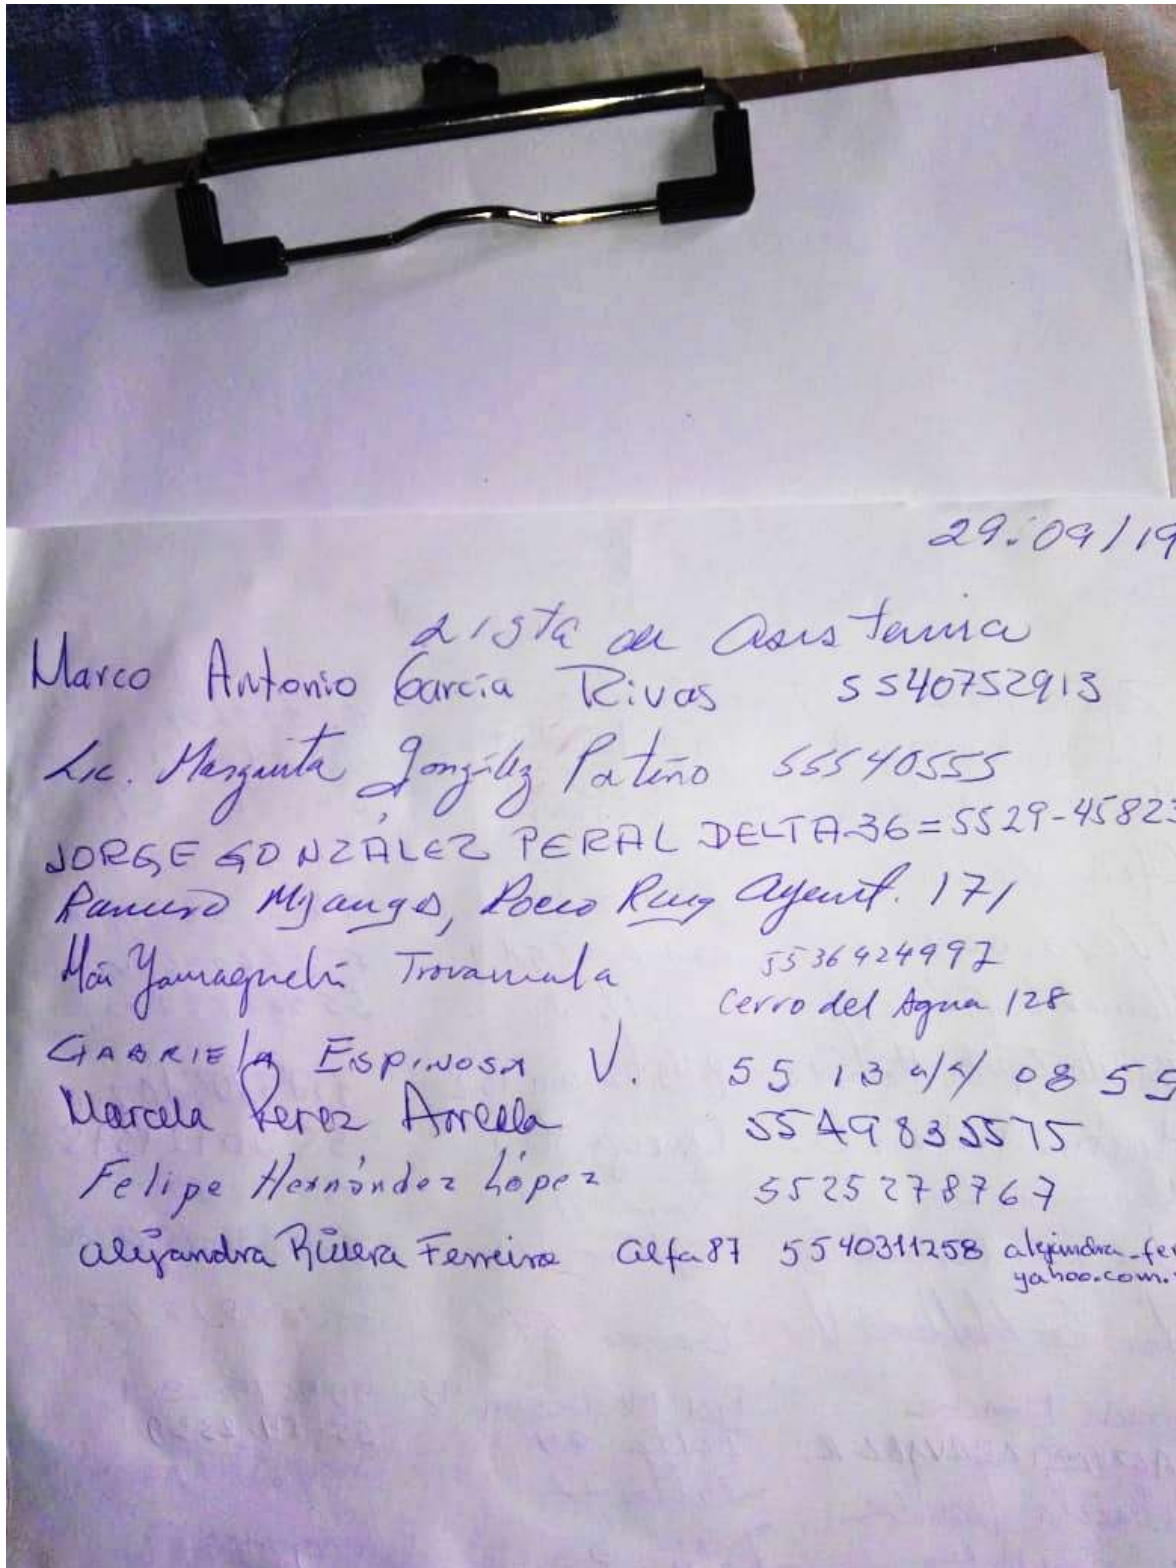 29/09/19
Lista de Asistencia
Marco Antonio García Rivas 5540752913
Lic. Margarita González Patiño 55540555
JORGE GONZÁLEZ PERAL DELTA-36=5529-45823
Ramiro Mijangos, Rocio Ruiz 171
Yamaguchi Trovamala 5536424997
Cerro del Agua 128
GABRIEla ESPINOSA V. 55 13 44 08 55
Marcela Perez Arreola 5549835575
Felipe Hernández López 5525278767
alejandra Rivera Ferreira alfa87 5540311258 alejandra-fer
yahoo.com.